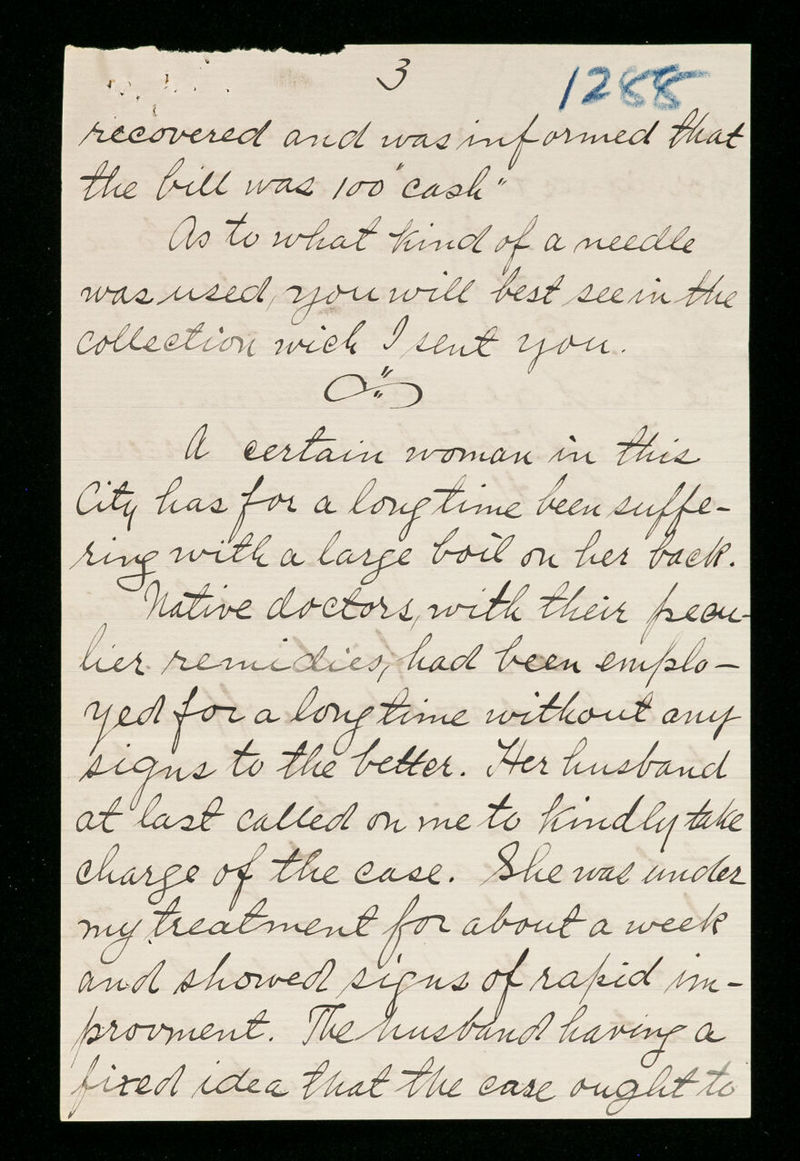 3
1288
recovered and was informed that
the bill was 100 "cash"
As to what kind of a needle
was used, you will best see in the
collection wich I sent you.
A certain woman in this
City has for a long time been suffe-
ring with a large boil on her back.
Native doctors, with their pecu-
lier remidies, had been emplo-
yed for a long time without any
signs to the better. Her husband
at last called on me to kindly take
charge of the case. She was under
my treatment for about a week
and showed signs of rapid im-
provment. The husband having a
fixed idea that the case ought to